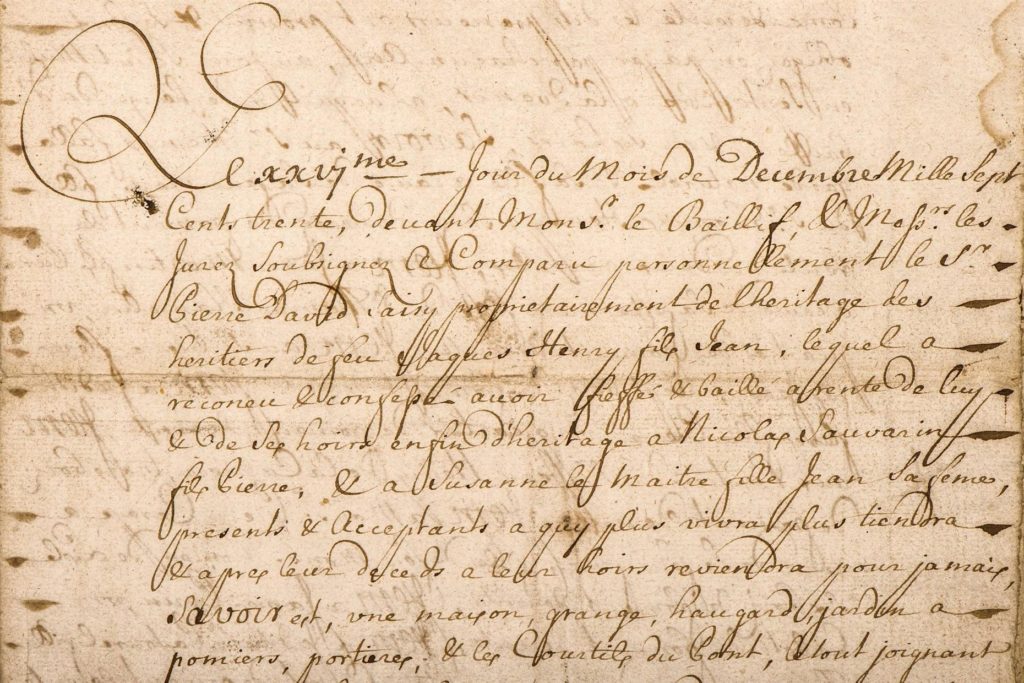 Le xxvj.me Jour du Mois de Decembre Mille Sept
Cents trente, devant Mons.r le Baillif, & Mess.rs les
Jurez Soubsignez Ce Comparu personnellément le S.r
Pierre David Saisy proprietairement de lheritage des
heritiers de feu Jaques Henry fils Jean, lequel a
reconeu & confessé avoir fieffé & baillé a rente de luy
& de ses hoirs enfin d'heritage a Nicolas Sauvarin
fils Pierre, & a Susanne le Maitre fille Jean Sa feme,
presents & Acceptants a quy plus vivra plus tiendra
& apres léur deceds a leur hoirs reviendra pour jamais,
Savoir est, vne maison, grange, haugard, jardin a
pomiers, portieres, & les Courtils du Pont, le tout joignant